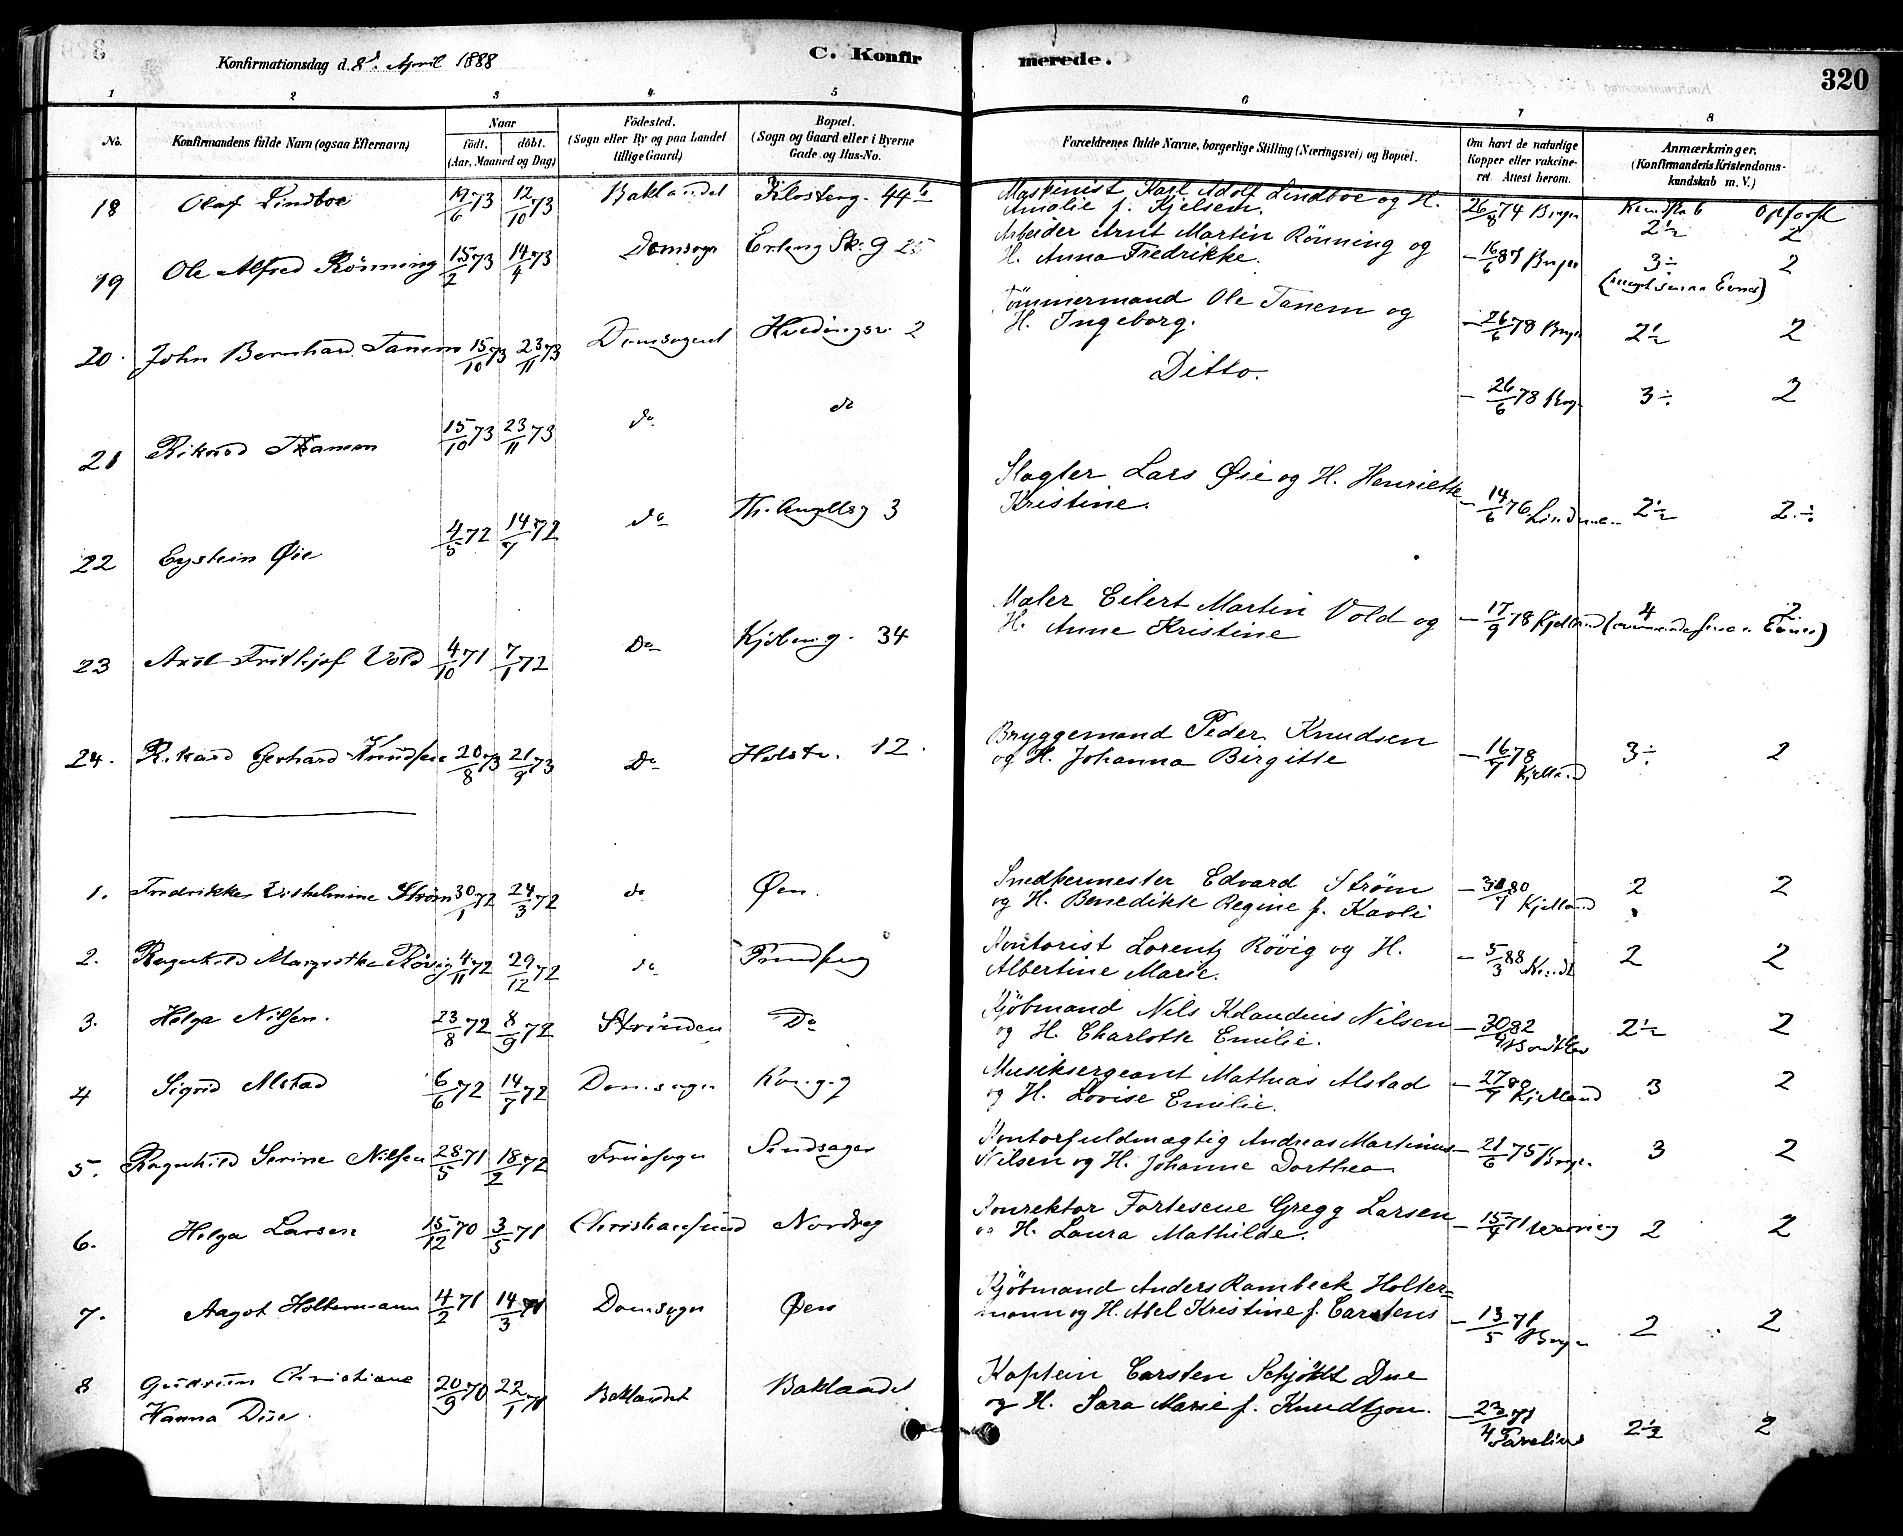 Konfirmationsdag d. 8d. April 1888
C. Konfirmerede.
320
1 2 3 4 5 6 7 8
No.
Konfirmandens fulde Navn (ogsaa Efternavn)
Naar
födt. döbt.
(Aar, Maaned og Dag)
Födested.
(Sogn eller By og paa Landet
tillige Gaard)
Bopæl.
(Sogn og Gaard eller i Byerne
Gade og Hus-No.
Forældrenes fulde Navne, borgerlige Stilling (Næringsvei) og Bopæl.
Om havt de naturlige
Kopper eller vakcine-
ret. Attest herom.
Anmærkninger.
(Konfirmandens Kristendoms-
kundskab m. V.)
18 Olaf Lindboe 19/6 73 12/10 73 Baklandet Klosterg. 44 b
Maskinist Karl Adolf Lindboe og H.
Amalie f. Kjelsen.
26/8 74 2½ 2
19 Ole Alfred Rönning 15/2 73 14/4 73 Domsogn Erling Sk. g 25
Arbeider Arnt Martin Rönning og
H. Anna Fredrikke.
3÷ 2
20. John Bernhard Tanem 15/10 73 23/11 73 Domsognet 2
Tömmermand Ole Tanem og
H. Ingeborg.
26/6 78 2½ 2
21 Rikard Tanem 15/10 73 23/11 73 do do
Ditto.
26/6 78 3÷ 2
22 Eystein Øie 4/5 72 14/7 72 do Th. Angellsg 3
Slagter Lars Øie og H. Henriette
Kristine.
14/6 76 2½ 2÷
23 Axel Frithjof Vold 4/10 71 7/1 72 Do Kjöbmg. 34
Maler Eilert Martin Vold og
H. Anne Kristine
17/9 78 Kjelland 4 2
24. Rikard Gerhard Knudsen 20/8 73 21/9 73 Do 12.
Bryggemand Peder Knudsen
og H. Johanna Birgitte
16/7 78 Kjelland 3÷ 2
1. Fredrikke Vilhelmine Ström 30/1 72 24/3 72 do Øen.
Snedkermester Edvard Ström
og H. Benedikte Regine f. Kavli
Kjelland 2 2
2. Ragnhild Margrethe Rövig 4/11 72 29/12 72 do
Kontorist Lorentz Rövig og H.
Albertine Marie.
5/3 88 2 2
3. Helga Nilsen. 23/8 72 8/9 72 Strinden Do
Kjöbmand Nils Klaudius Nilsen
og H. Charlotte Emilie.
2½ 2
4 Sigrid Alstad 6/6 72 14/7 72 Domsogn Kong. g
Musiksergeant Mathias Alstad
og H. Lovise Emilie.
Kjelland 3 2
5. Ragnhild Serine Nilsen 28/5 71 18/2 72 Fruesogn
Kontorfuldmægtig Andreas Martinus
Nilsen og H. Johanne Dorthea
21/6 75 3 2
6. Helga Larsen 15/12 70 3/5 71 Christiansund Nordreg
Konrektor Fortescue Gregg Larsen
og H. Laura Mathilde.
15/9 71 2 2
7. Aagot Holtermann 4/2 71 14/3 71 Domsogn Øen
Kjöbmand Anders Rambeck Holter=
mann og H. Abel Kristine f. Carstens
13/5 71 2 2
8 Gudrun Christiane
Hanna Due. 20/9 70 22/1 71 Baklandet Baklandet
Kaptein Carsten Schjödt Due
og H. Sara Marie f. Knudtzon.
2½ 2